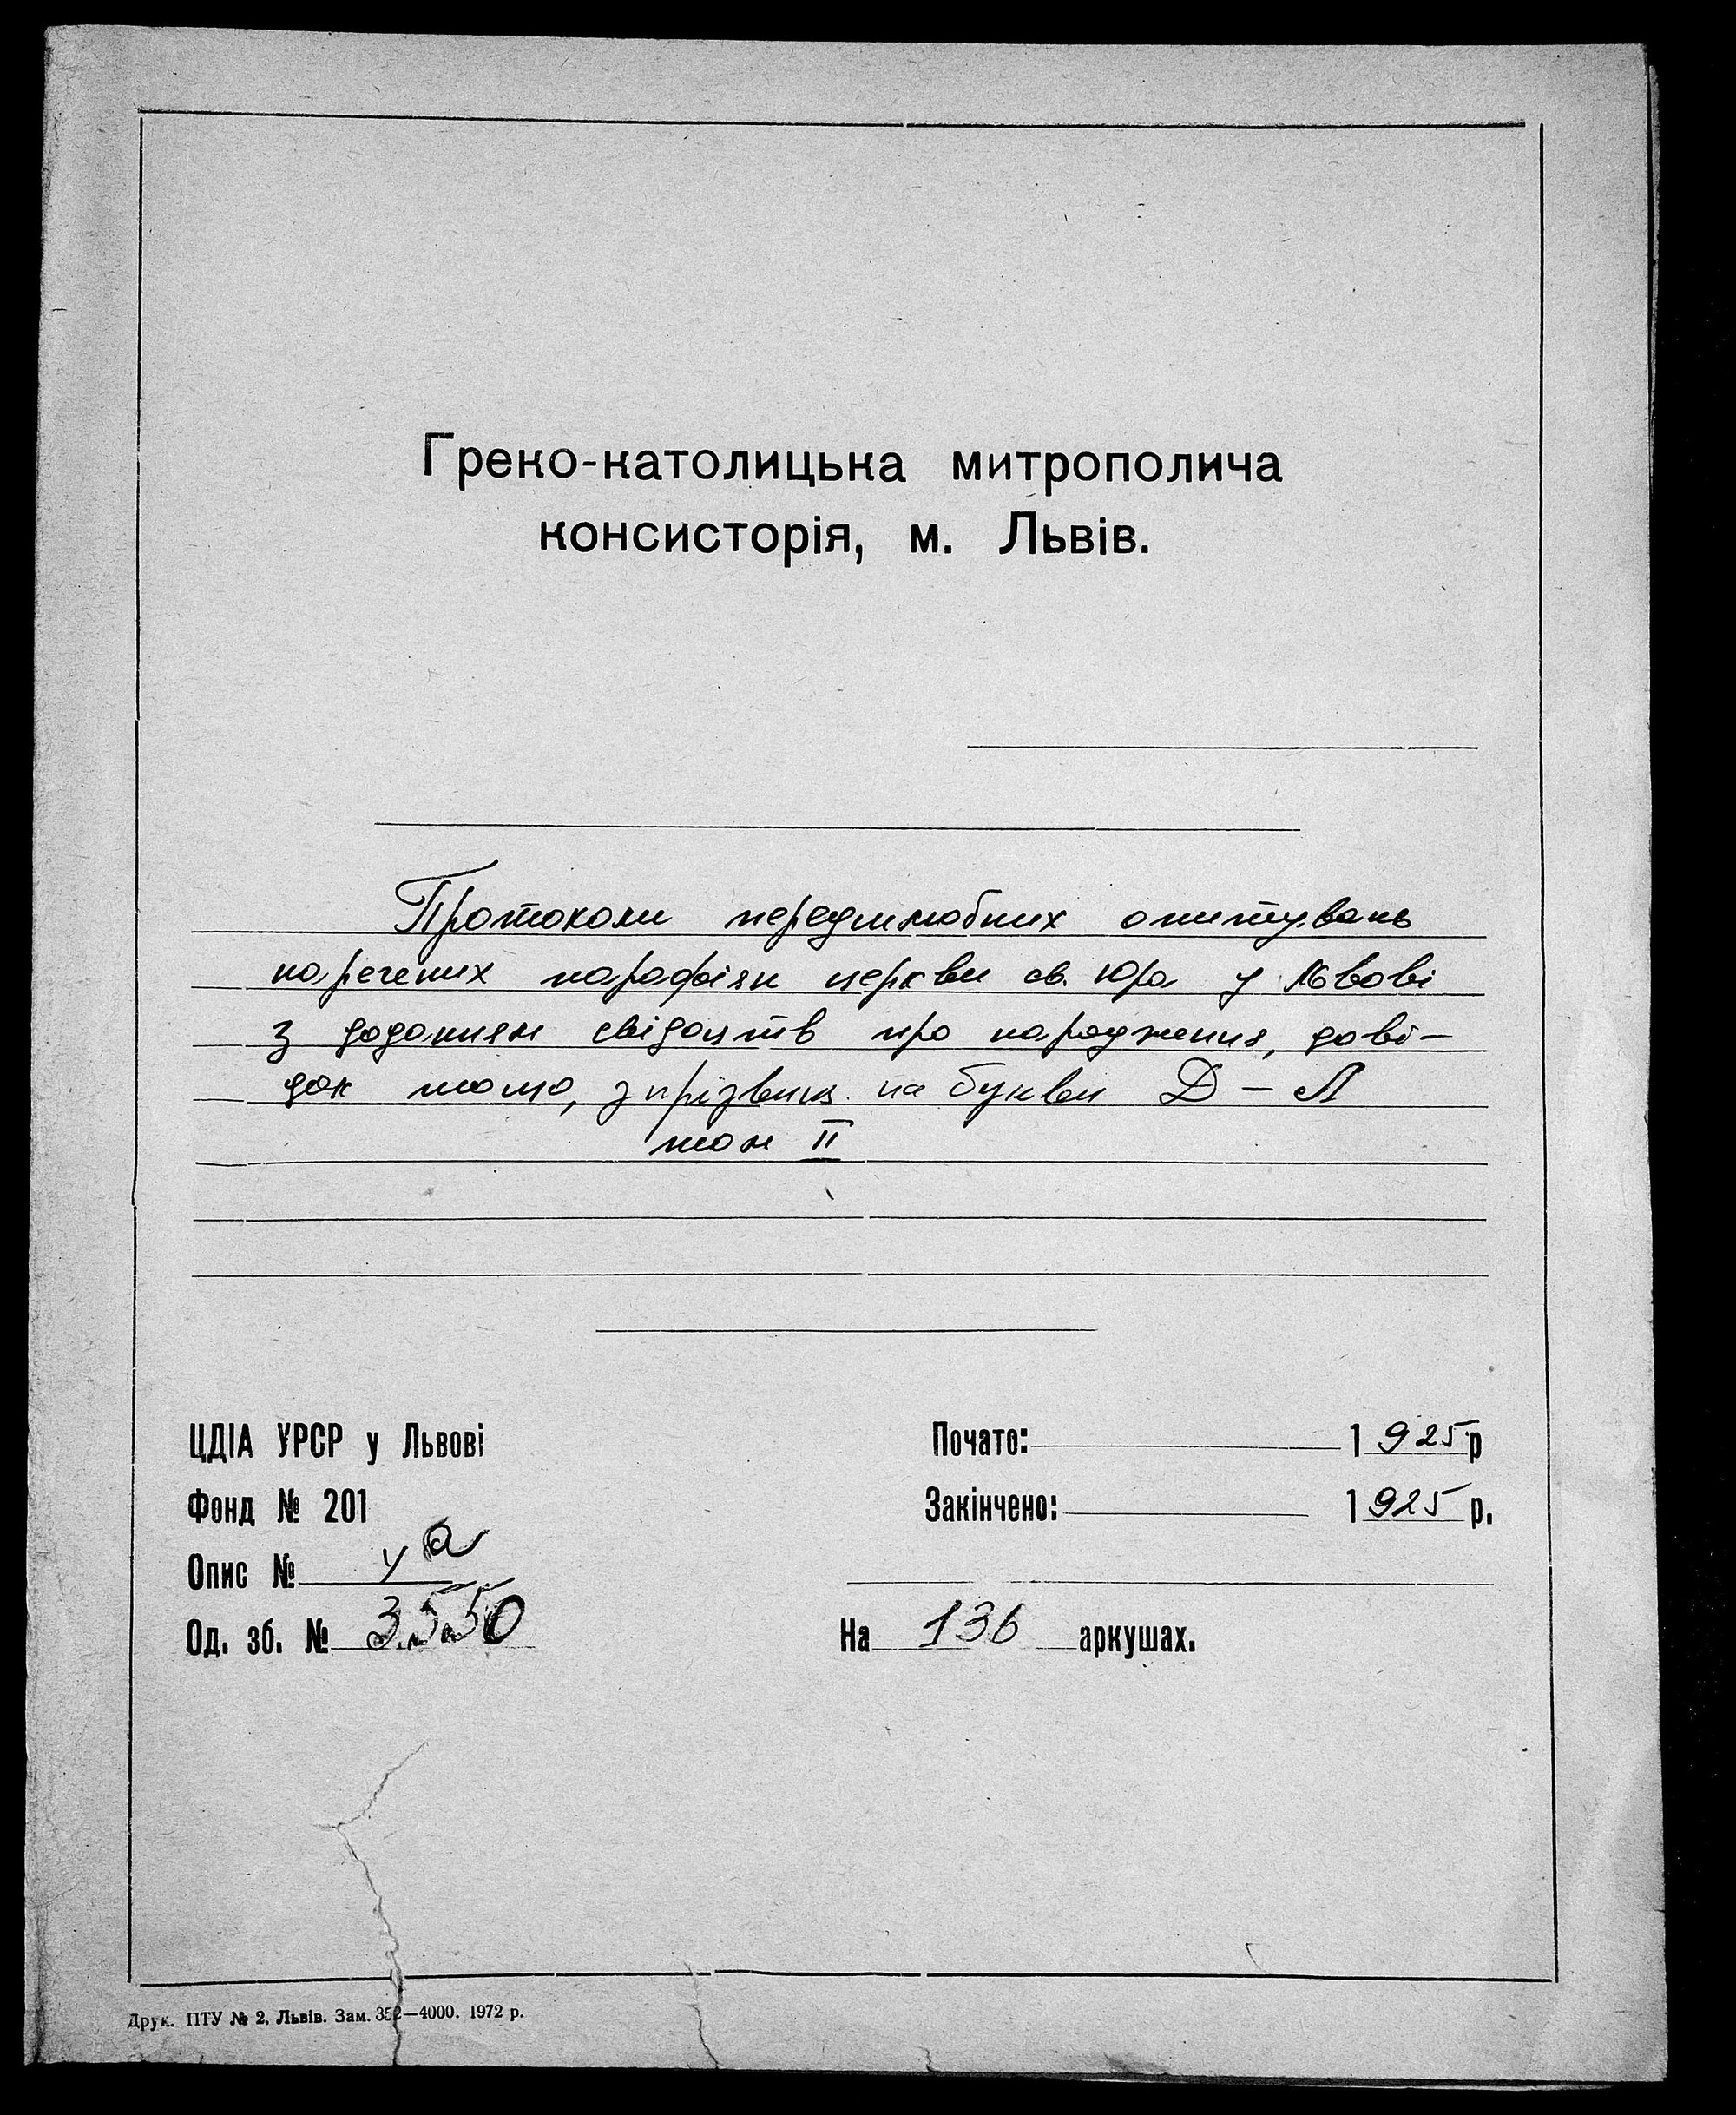 Греко-католицька митрополича
консисторія, м. Львів.
Протоколи передшлюбних опитувань
наречених парафіян церкви св. Юра у Львові
з доданням свідоцтв про народження, дові-
док тощо, з прізвищ. на букви Д - Л
том II
ЦДІА УРСР у Львові
Фонд № 201
Опис № 4а
Од. зб. № 3550
Почато: 1925р
Закінчено: 1925 р.
На 136 аркушах.
Друк. ПТУ № 2. Львів. Зам. 352—4000. 1972 р.